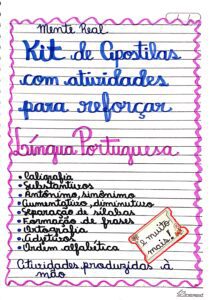 Mente Real
Kit de Apostilas
com atividades
para reforçar
Língua Portuguesa
• Caligrafia
• Substantivos
• Antônimo, sinônimo
• Aumentativo, diminutivo
• Separação de sílabas
• Formação de frases
• Ortografia
• Adjetivos
• Ordem alfabética
e muito
mais!
Atividades produzidas à
mão